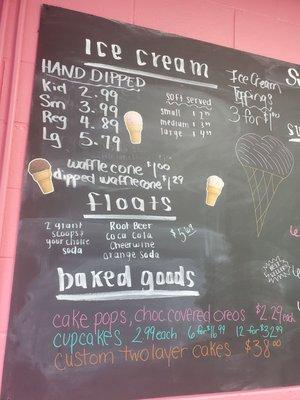 Ice Cream
HAND DIPPED
Kid 2.99
Sm 3.99
Reg 4.89
Lg 5.79
soft served
small
medium
large
Ice Cream
Toppings
3 for $1⁰⁰
waffle cone $1⁰⁰
dipped waffle cone $1²⁹
floats
2 giant
scoops &
your choice
soda
Root Beer
Coca Cola
Cheerwine
Orange Soda
baked goods
cake pops, choc. covered oreos $2.29 each
cupcakes 2.99 each 6 for $16⁹⁹ 12 for $32⁹⁹
custom two layer cakes $38⁰⁰